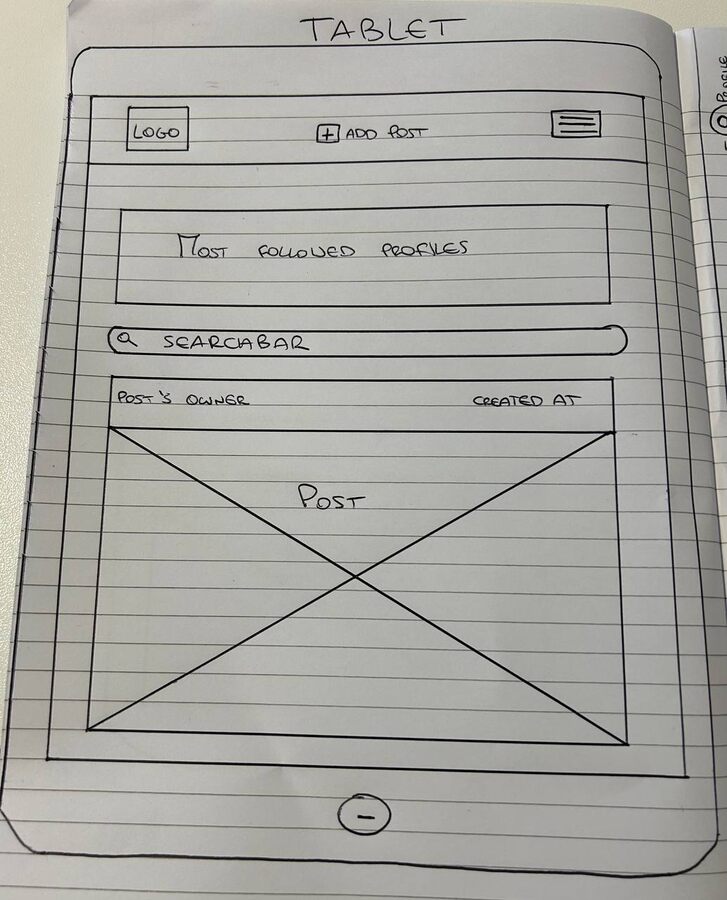 TABLET
LOGO
+ ADD POST
MOST FOLLOWED PROFILES
SEARCHBAR
POST'S OWNER
CREATED AT
POST
PROFILE